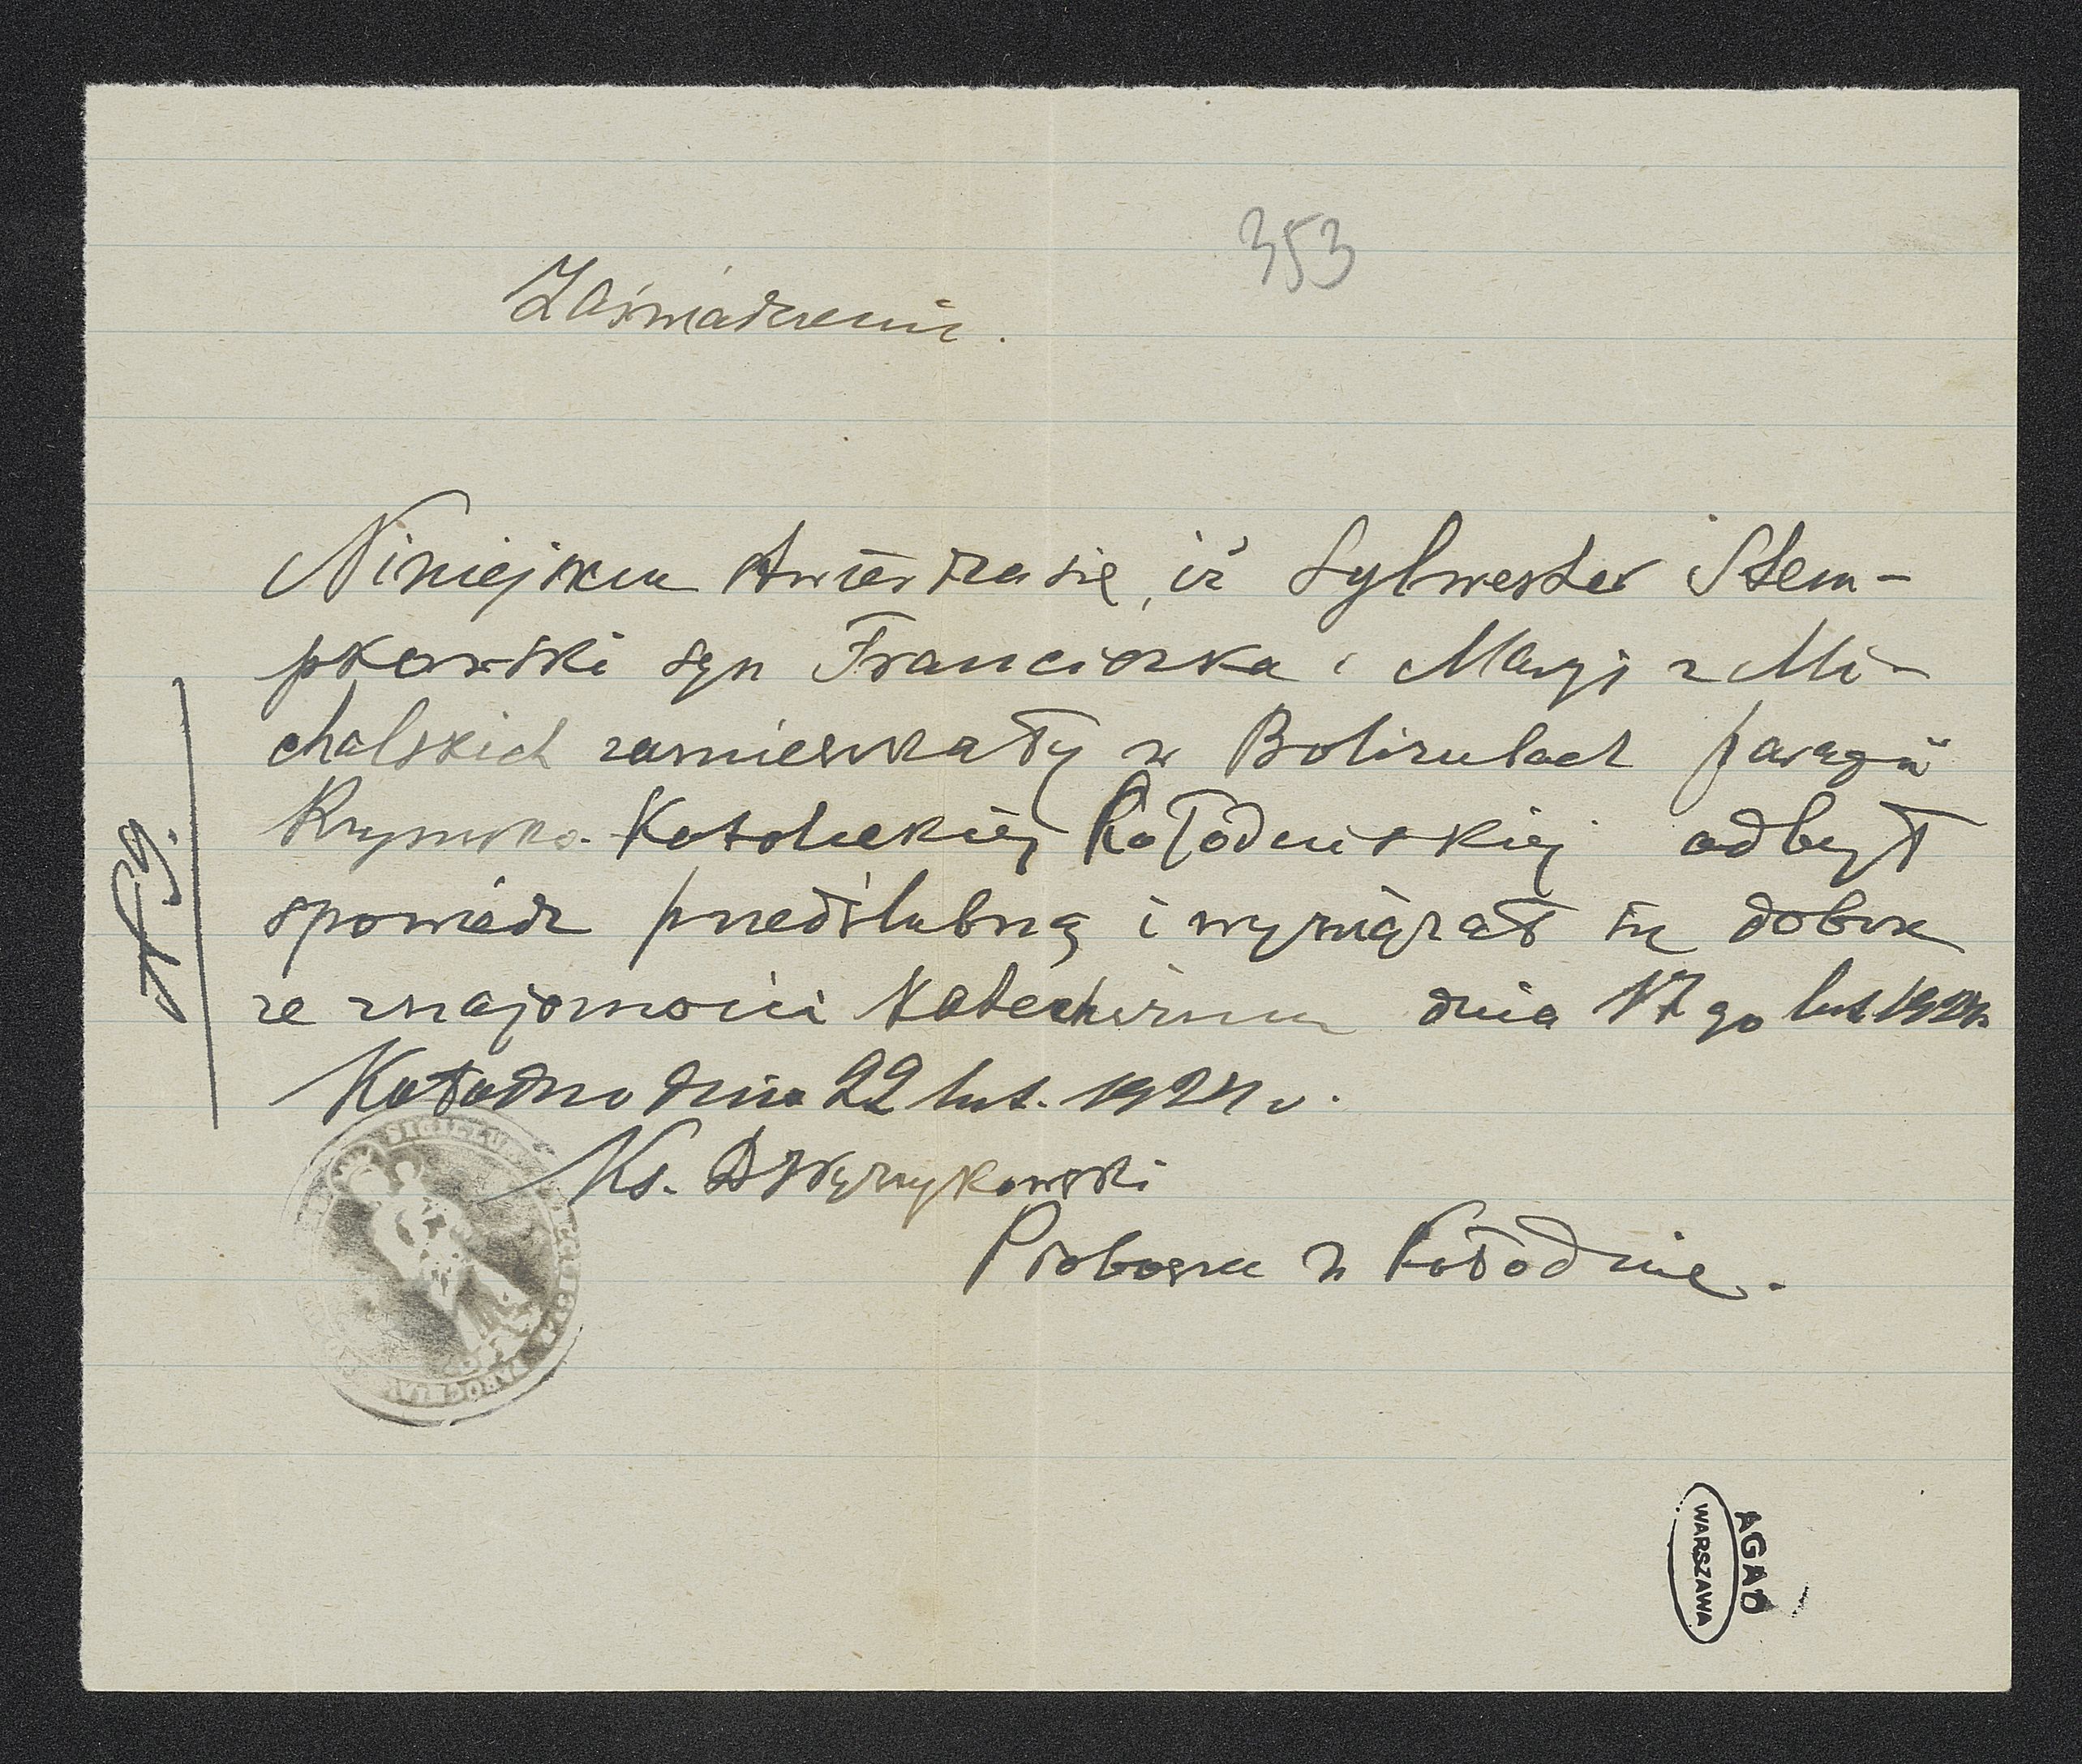 353
Zaświadczenie.
Niniejszem stwierdza się, iż Sylwester Stem-
pkowski syn Franciszka i Maryi z Mi-
chalskich zamieszkały w Bolizubach parafii
Rzymsko-Katolickiej Kołodeńskiej odbył
spowiedź przedślubną i wywiązał się dobrze
ze znajomości katechizmu dnia 17 go lut 1924 r.
Kołodno dnia 22 lut. 1924 r.
Ks.
Proboszcz w Kołodnie.
№ 59.
SIGILLUM
AGAD
WARSZAWA